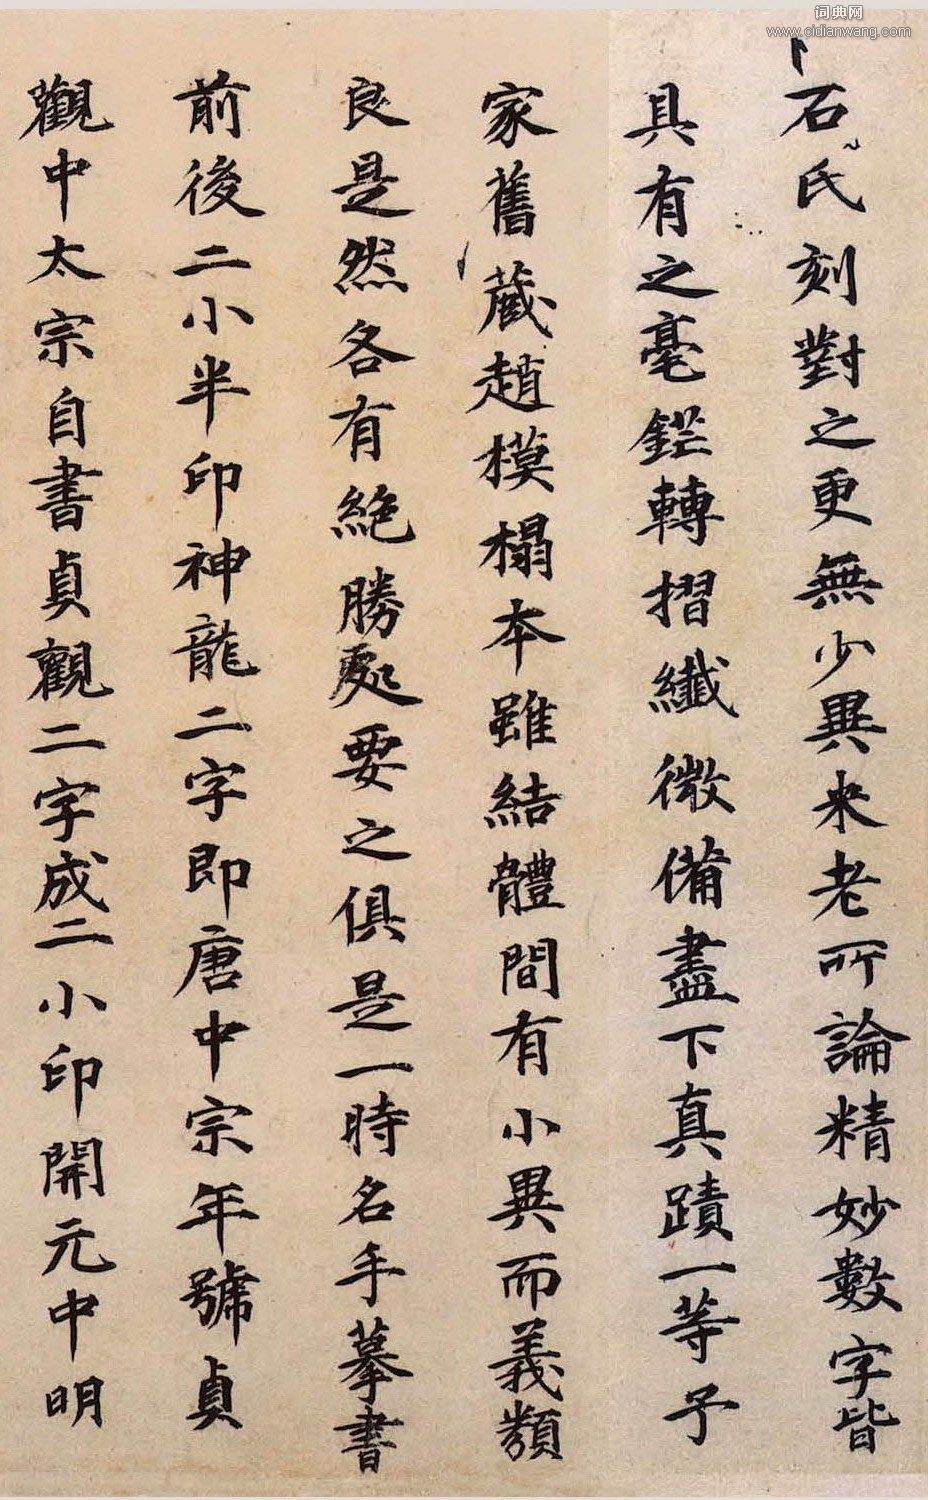 词典网
www.cidianwang.com
石氏刻對之更無少異米老所論精妙數字皆
具有之毫鋩轉摺纖微備盡下真蹟一等予
家舊蔵趙模榻本雖結體間有小異而義類
良是然各有絶勝處要之俱是一時名手摹書
前後二小半印神龍二字即唐中宗年號貞
觀中太宗自書貞觀二字成二小印開元中明